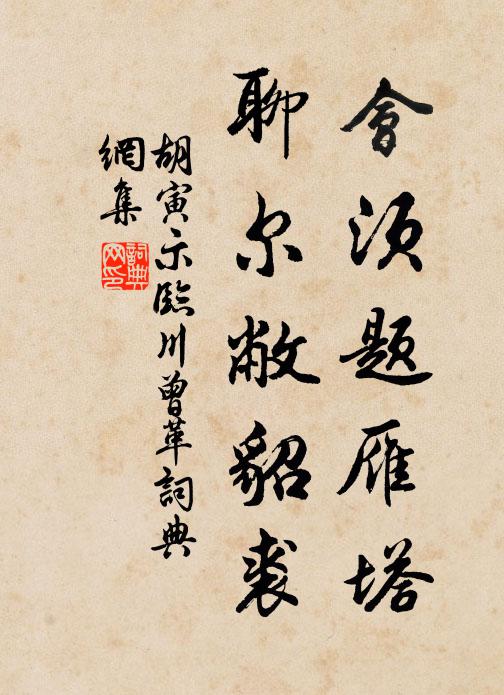 會須題雁塔
聊尔敝貂裘
胡寅示臨川曾革詞典
網集
詞典
网印